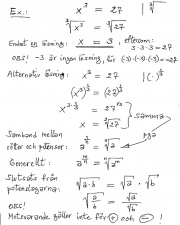 Ex.: x³ = 27 | ∛
∛x³ = ∛27
Endast en lösning: x = 3, eftersom
3·3·3 = 27
OBS! -3 är ingen lösning, för (-3)·(-3)·(-3) = -27
Alternativ lösning: x³ = 27 | ( )^(1/3)
(x³)^(1/3) = (27)^(1/3)
x^(3·1/3) = 27^(1/3)
x = ∛27
samma
Samband mellan
rötter och potenser: a^(1/n) = ⁿ√a
Generellt: a^(m/n) = ⁿ√a^m
Slutsats från
potenslagarna: √a·b = √a · √b
OBS! √a/b = √a/√b
Motsvarande gäller inte för + och − !